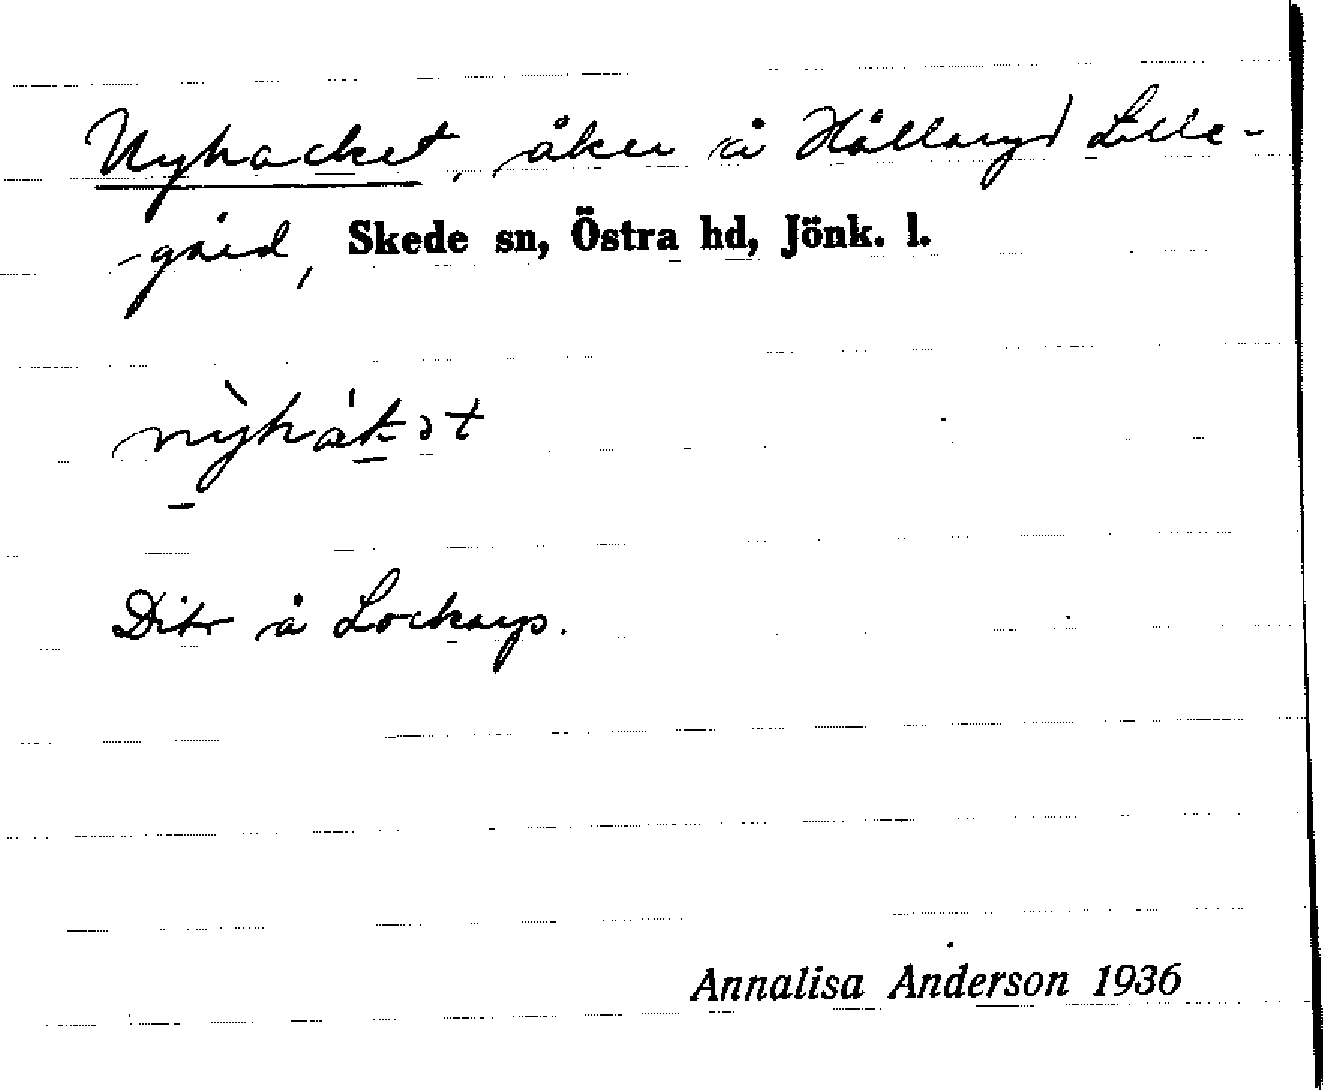 Nyhacket, åker å Hållaryd Lille-
-gård, Skede sn, Östra hd, Jönk. l.
nỳhákət
Dito å Lockarp.
Annalisa Anderson 1936